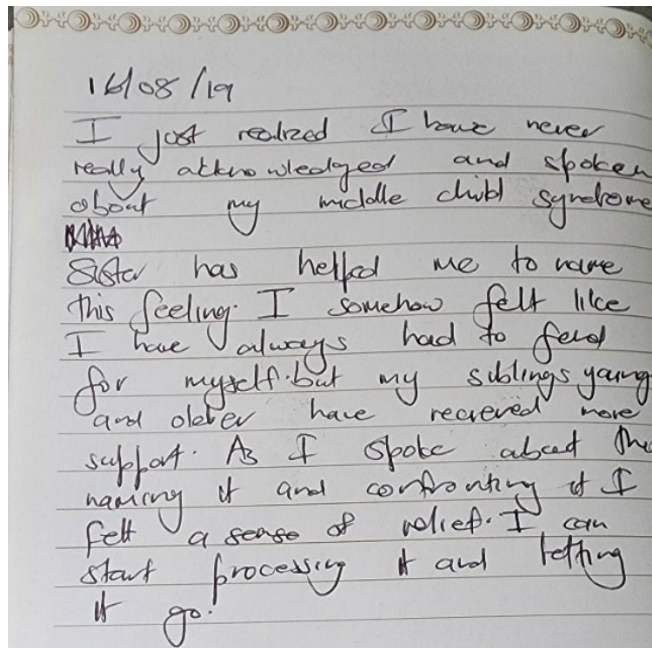 16/08/19
I just realized I have never
really acknowledged and spoken
about my middle child syndrome
Sister has helped me to name
this feeling. I somehow felt like
I have always had to fend
for myself. but my siblings young
and older have received more
support. As I spoke about this
naming it and confronting it I
felt a sense of relief. I can
start processing it and letting
it go.